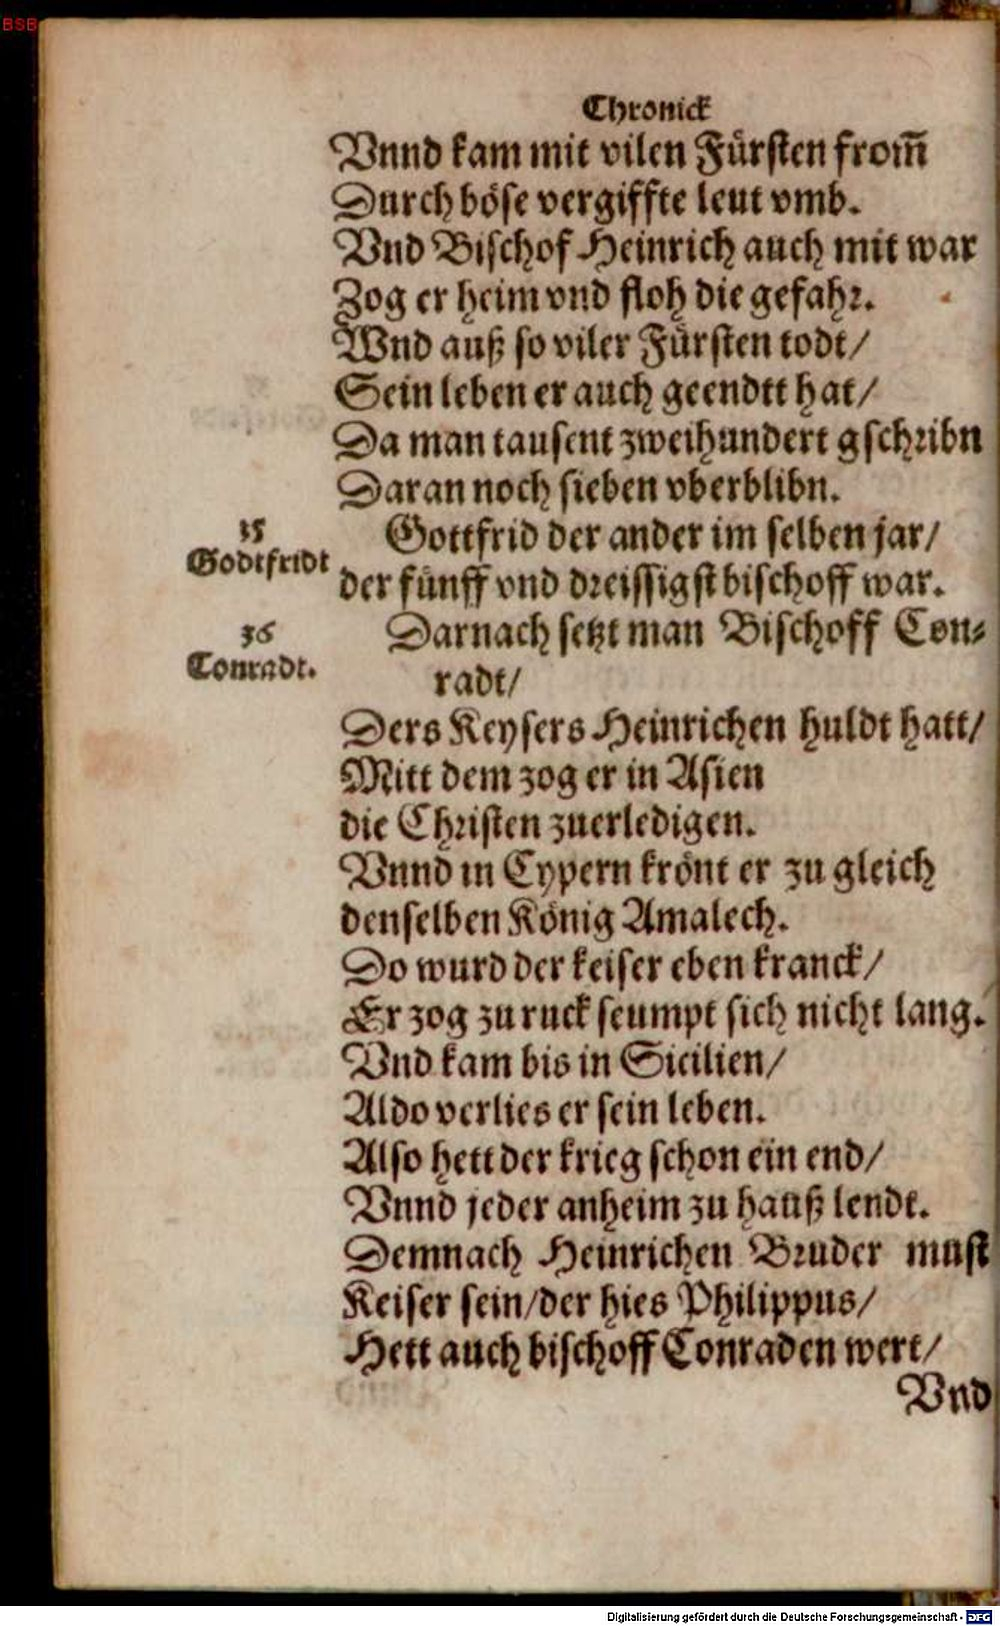 BSB
Chronick
Vnnd kam mit vilen Fürsten from̄
Durch böse vergiffte leut vmb.
Vnd Bischof Heinrich auch mit war
Zog er heim vnd floh die gefahr.
Vnd auß so viler Fürsten todt/
Sein leben er auch geendtt hat/
Da man tausent zweihundert gschribn
Daran noch sieben vberblibn.
35
Godtfridt
Gottfrid der ander im selben jar/
der fünff vnd dreissigst bischoff war.
36
Conradt.
Darnach setzt man Bischoff Con⸗
radt/
Ders Keysers Heinrichen huldt hatt/
Mitt dem zog er in Asien
die Christen zuerledigen.
Vnnd in Cypern krönt er zu gleich
denselben König Amalech.
Do wurd der keiser eben kranck/
Er zog zu ruck seumpt sich nicht lang.
Vnd kam bis in Sicilien/
Aldo verlies er sein leben.
Also hett der krieg schon ein end/
Vnnd jeder anheim zu hauß lendt.
Demnach Heinrichen Bruder must
Keiser sein/der hies Philippus/
Hett auch bischoff Conraden wert/
Vnd
Digitalisierung gefördert durch die Deutsche Forschungsgemeinschaft - DFG